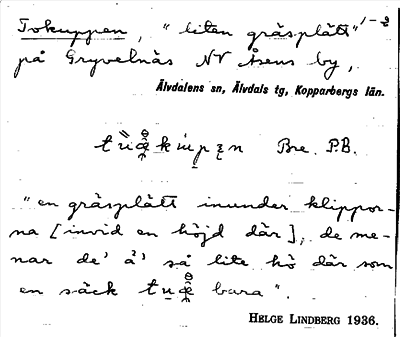 Tokuppen, "liten gräsplätt" 1-2
på Gryvelnäs NV Åsens by,
Älvdalens sn, Älvdals tg, Kopparbergs län.
Bre. P.B.
"en gräsplätt inunder klippor-
na [invid en höjd där], de me-
nar de' ä' så lite hö där som
en säck bara".
HELGE LINDBERG 1936.